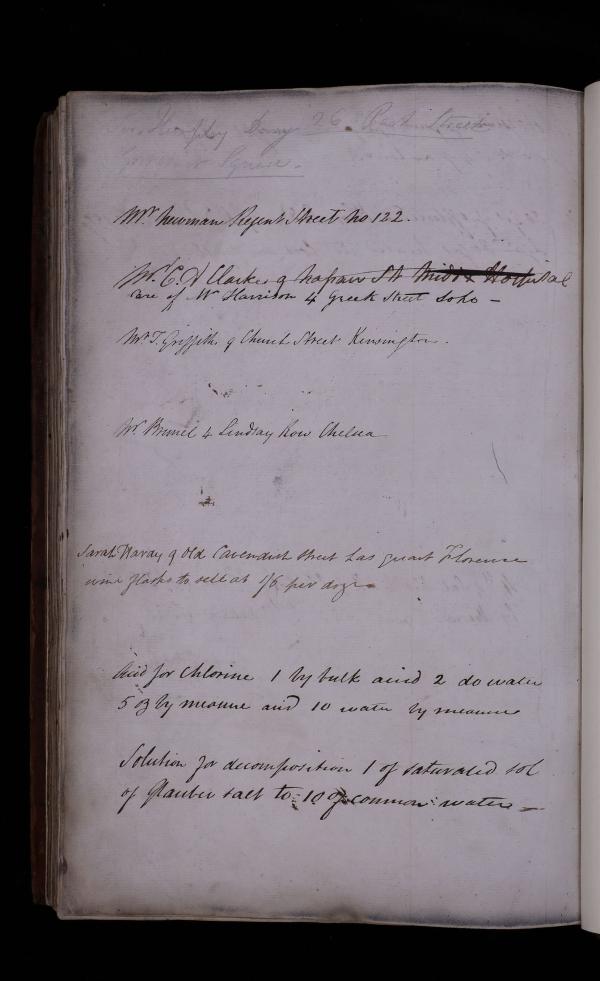 Sir Humphry Davy 26 Park Street
Grosvenor Square.
Mr. Newman Regent Street No 122.
Mr. C. Clarke 9 St Middx Hospital
care of Mr Harrison 4 Greek Street Soho –
Mr. T. Griffiths 9 Church Street Kensington.
Mr. Brunel 4 Lindsay Row Chelsea
Sarah 9 Old Cavendish Street has quart Florence
wine flasks to sell at 1/6 per dozen
Acid for Chlorine 1 by bulk acid 2 do water
5 oz by measure acid 10 water by measure
Solution for decomposition 1 of saturated sol
of Glauber salt to 10 of common water –